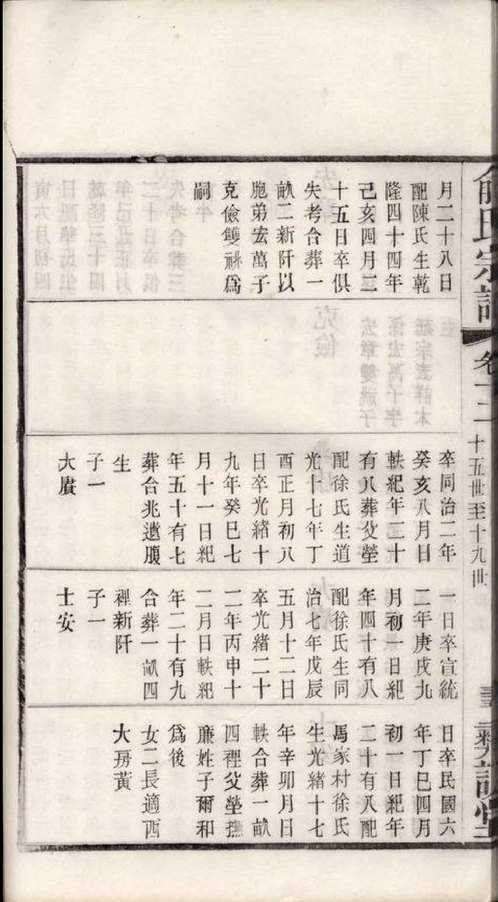 月二十八日
配陳氏生乾
隆四十四年
己亥四月二
十五日卒俱
失考合葬一
畝二新阡以
胞弟宏萬子
克儉雙祧爲
嗣
卒同治二年
癸亥八月日
軼紀年二十
有八葬父塋
配徐氏生道
光十七年丁
酉正月初八
日卒光緒十
九年癸巳七
月十一日紀
年五十有七
葬合兆遺腹
生
子一
大賡
一日卒宣統
二年庚戌九
月初一日紀
年四十有八
配徐氏生同
治七年戊辰
五月十二日
卒光緒二十
二年丙申十
二月日軼紀
年二十有九
合葬一畝四
裡新阡
子一
士安
日卒民國六
年丁巳四月
初一日紀年
二十有八配
馬家村徐氏
生光緒十七
年辛卯月日
軼合葬一畝
四裡父塋撫
廉姓子爾和
爲後
女二長適西
大房黃
氏宗譜
卷十二
十五世至十九世
彝訓堂